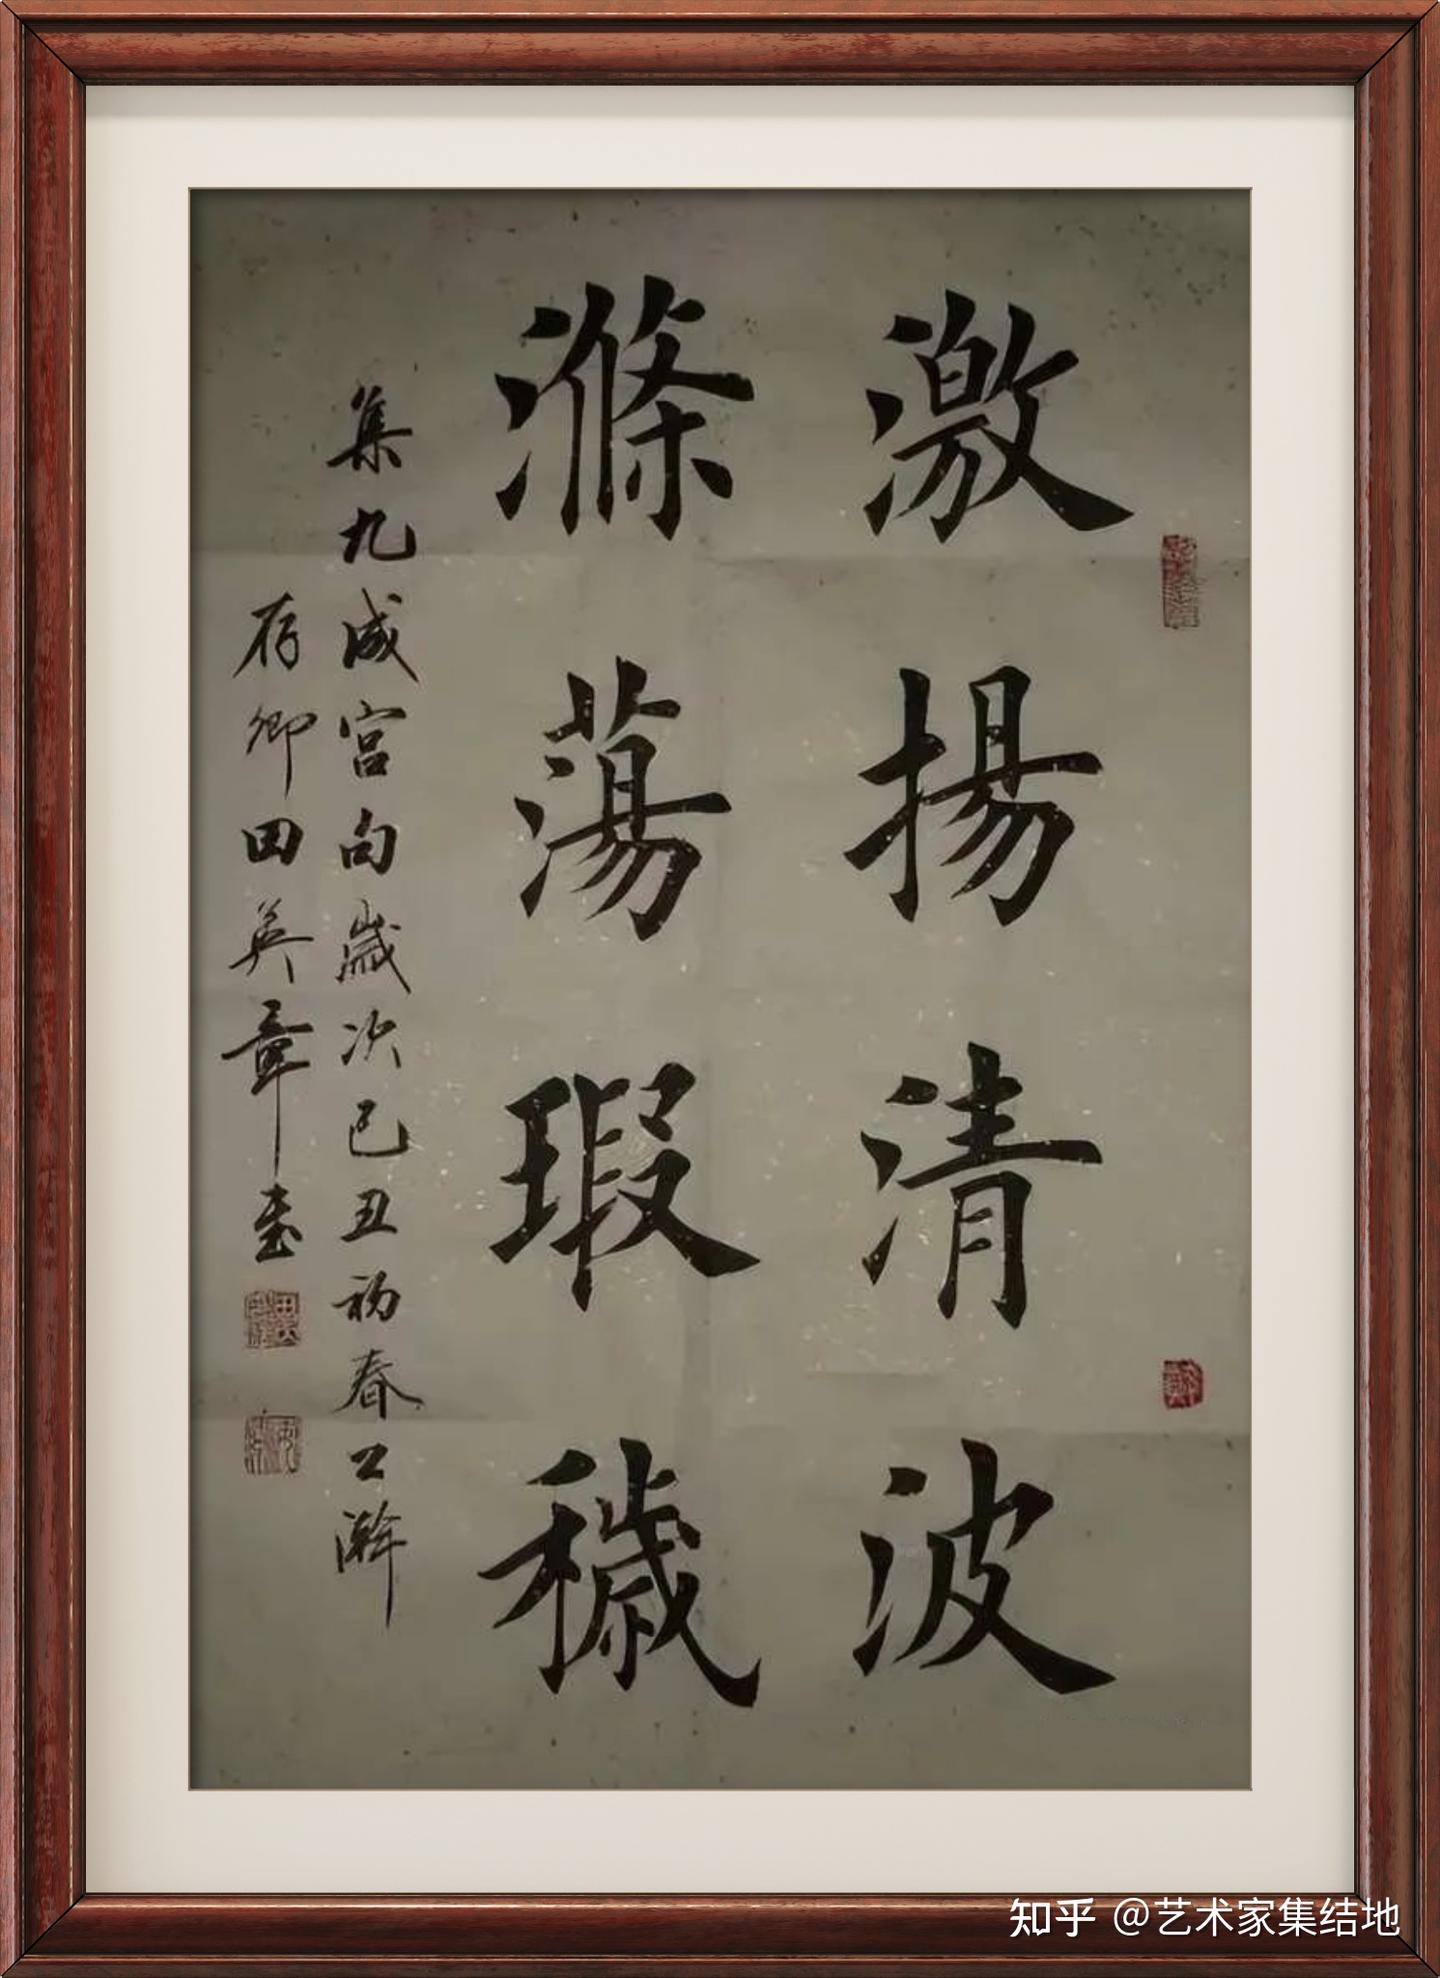 激揚清波
滌蕩瑕穢
集九成宮句歲次己丑初春公澣
存卿田英章書
知乎 @艺术家集结地